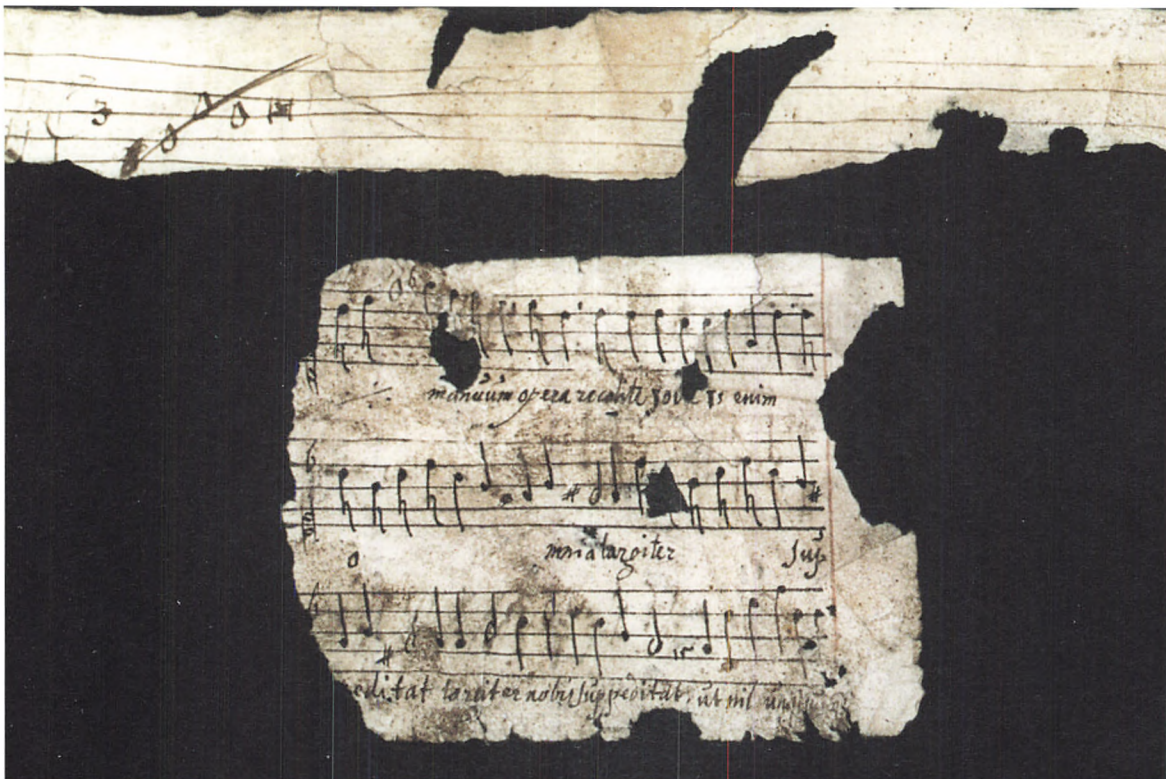 manuum opera recolite Jovæ is enim
o mnia largiter sup
editat largiter nobis suppeditat, ut nil